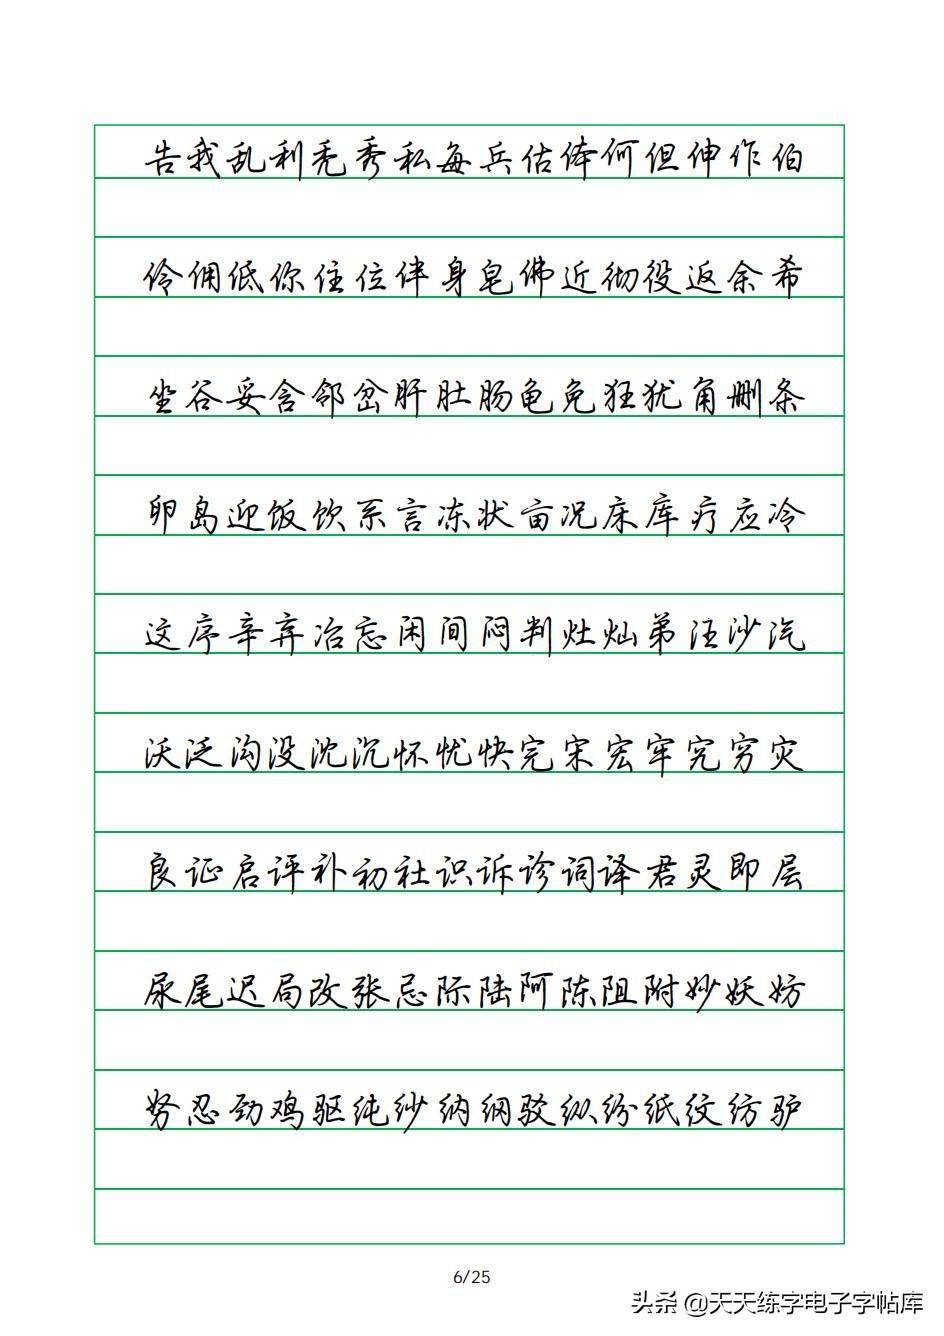 告我乱利秃秀私每兵估体何但伸作伯
伶佣低你住位伴身皂佛近彻役返余希
坐谷妥含邻岔肝肚肠龟免狂犹角删条
卵岛迎饭饮系言冻状亩况床库疗应冷
这序辛弃冶忘闲间闷判灶灿弟汪沙汽
沃泛沟没沈沉怀忧快完宋宏牢究穷灾
良证启评补初社识诉诊词译君灵即层
尿尾迟局改张忌际陆阿陈阻附妙妖妨
努忍劲鸡驱纯纱纳纲驳纵纷纸纹纺驴
6/25
头条 @天天练字电子字帖库